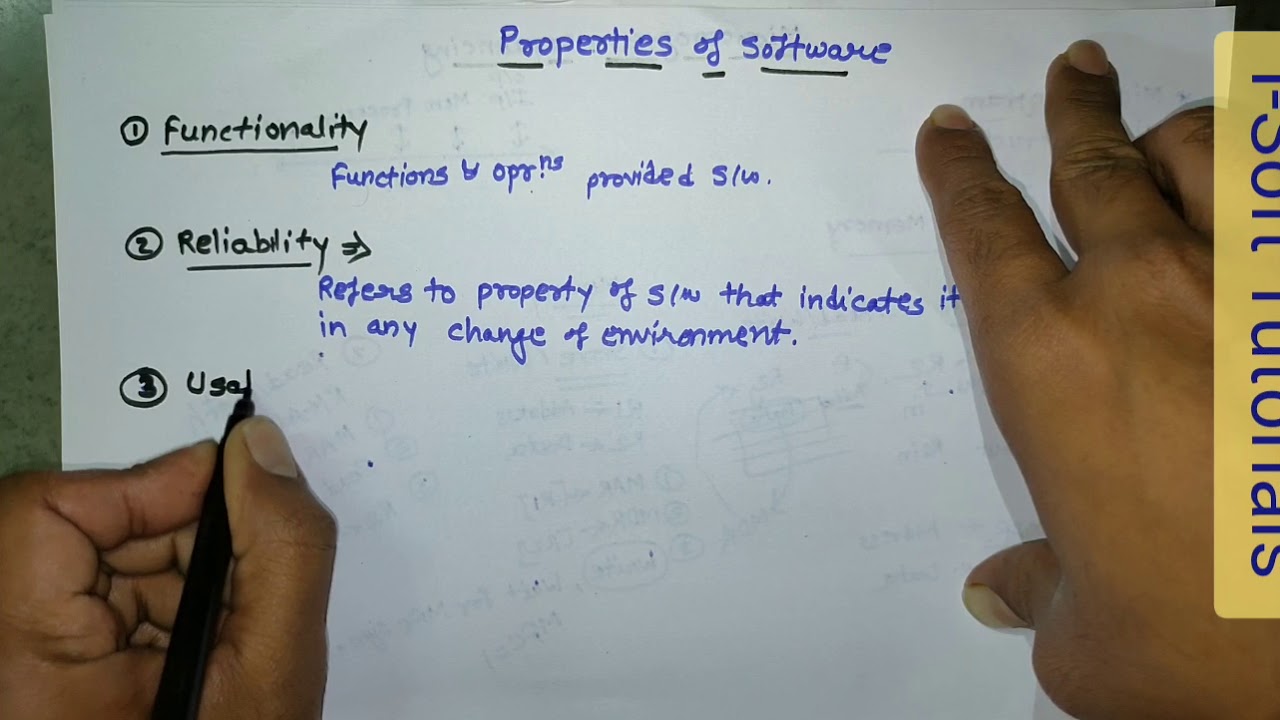 Properties of Software
① Functionality
Functions & oprns provided S/w.
② Reliability ⇒
Refers to property of S/w that indicates it
in any change of environment.
③ Usa
I-Soft Tutorials